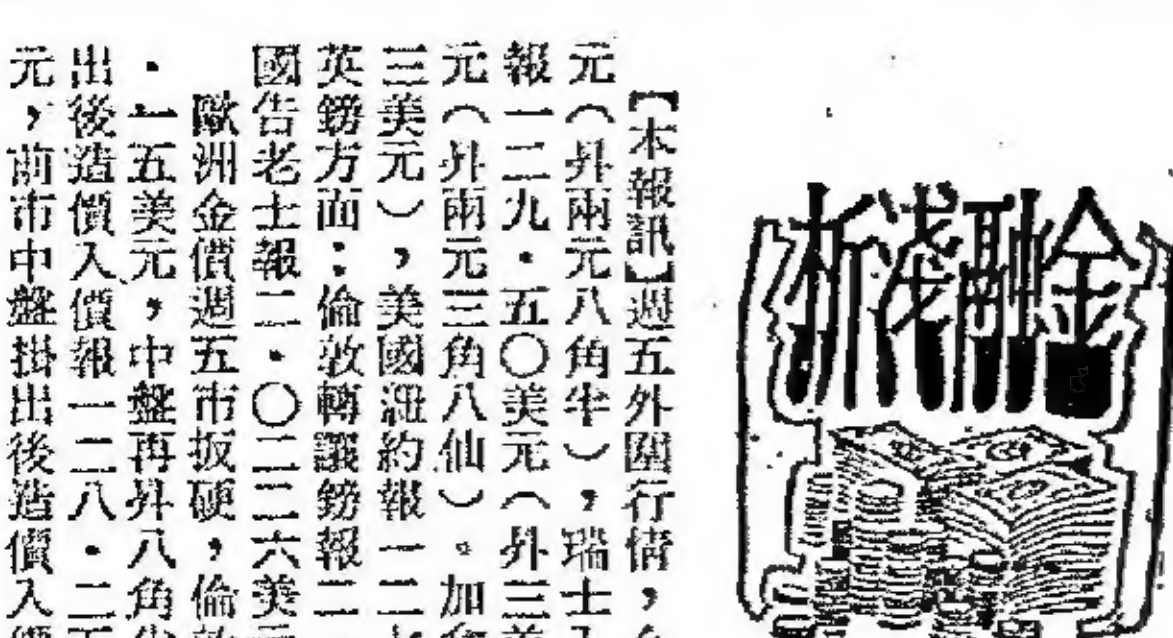 金融淺析
【本報訊】週五外圍行情，
元（昇兩元八角半），瑞士
報一二九．五〇美元（昇三
元（昇兩元三角八仙）。加
三美元），美國紐約報一二
英鎊方面：倫敦轉讓鎊報二
國告老士報二．〇二二六美
歐洲金價週五市坂硬，倫
．一五美元，中盤再昇八角
出後造價入價報一二八．二
元，前市中盤掛出後造價入